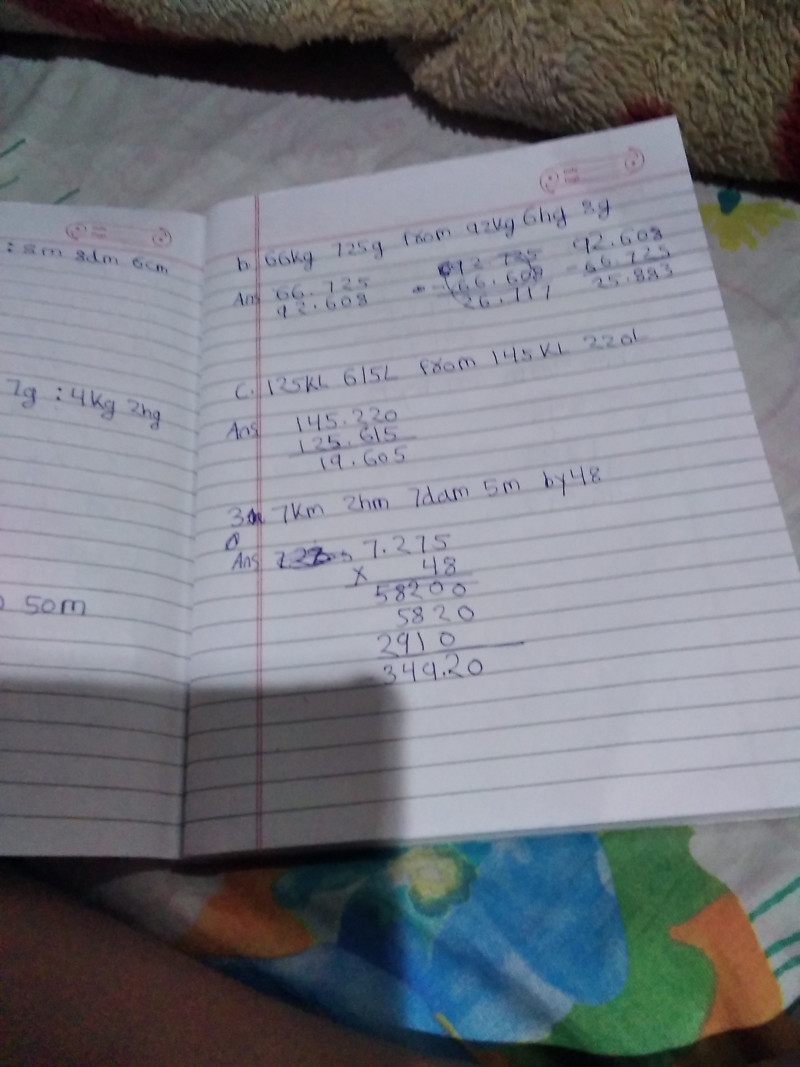 : 8m 8dm 6cm
7g : 4Kg 2hg
50m
b 66kg 725g from 92kg 6hg 8g
Ans 66.725
92.608
92.725
- 66.608
26.117
92.608
- 66.725
25.883
C. 125KL 615L from 145KL 220L
Ans 145.220
125.615
19.605
3 7Km 2hm 7dam 5m by 48
Ans 7.275
X 48
58200
5820
2910
349.20